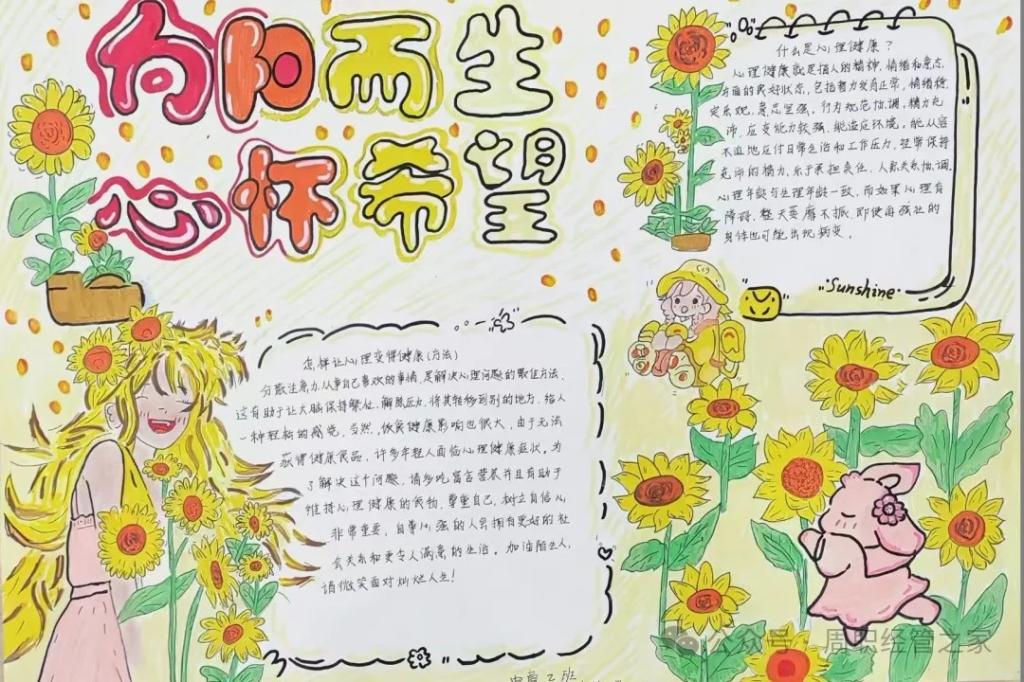 向阳而生
心怀希望
什么是心理健康？
心理健康就是指人的精神、情绪和意志
方面的良好状态，包括智力发育正常，情绪稳
定乐观，意志坚强，行为规范协调，精力充
沛，应变能力较强，能适应环境，能从容
不迫地应付日常生活和工作压力，经常保持
充沛的精力，乐于承担责任，人际关系协调，
心理年龄与生理年龄一致，而如果心理有
障碍，整天萎靡不振，即使再强壮的
身体也可能出现病变。
·Sunshine·
怎样让心理变得健康(方法)
分散注意力，从事自己喜欢的事情，是解决心理问题的最佳方法，
这有助于让大脑保持繁忙，解压力，将其转移到别的地方，给人
一种轻松的感觉，当然，饮食健康影响也很大，由于无法
获得健康食品，许多年轻人面临心理健康症状。为
了解决这个问题，请多吃富含营养并且有助于
维持心理健康的食物，尊重自己，树立自信心
非常重要，自尊心强的人会拥有更好的社
会关系和更令人满意的生活。加油陌生人，
请微笑面对灿烂人生！
2班
公众号·周职经管之家